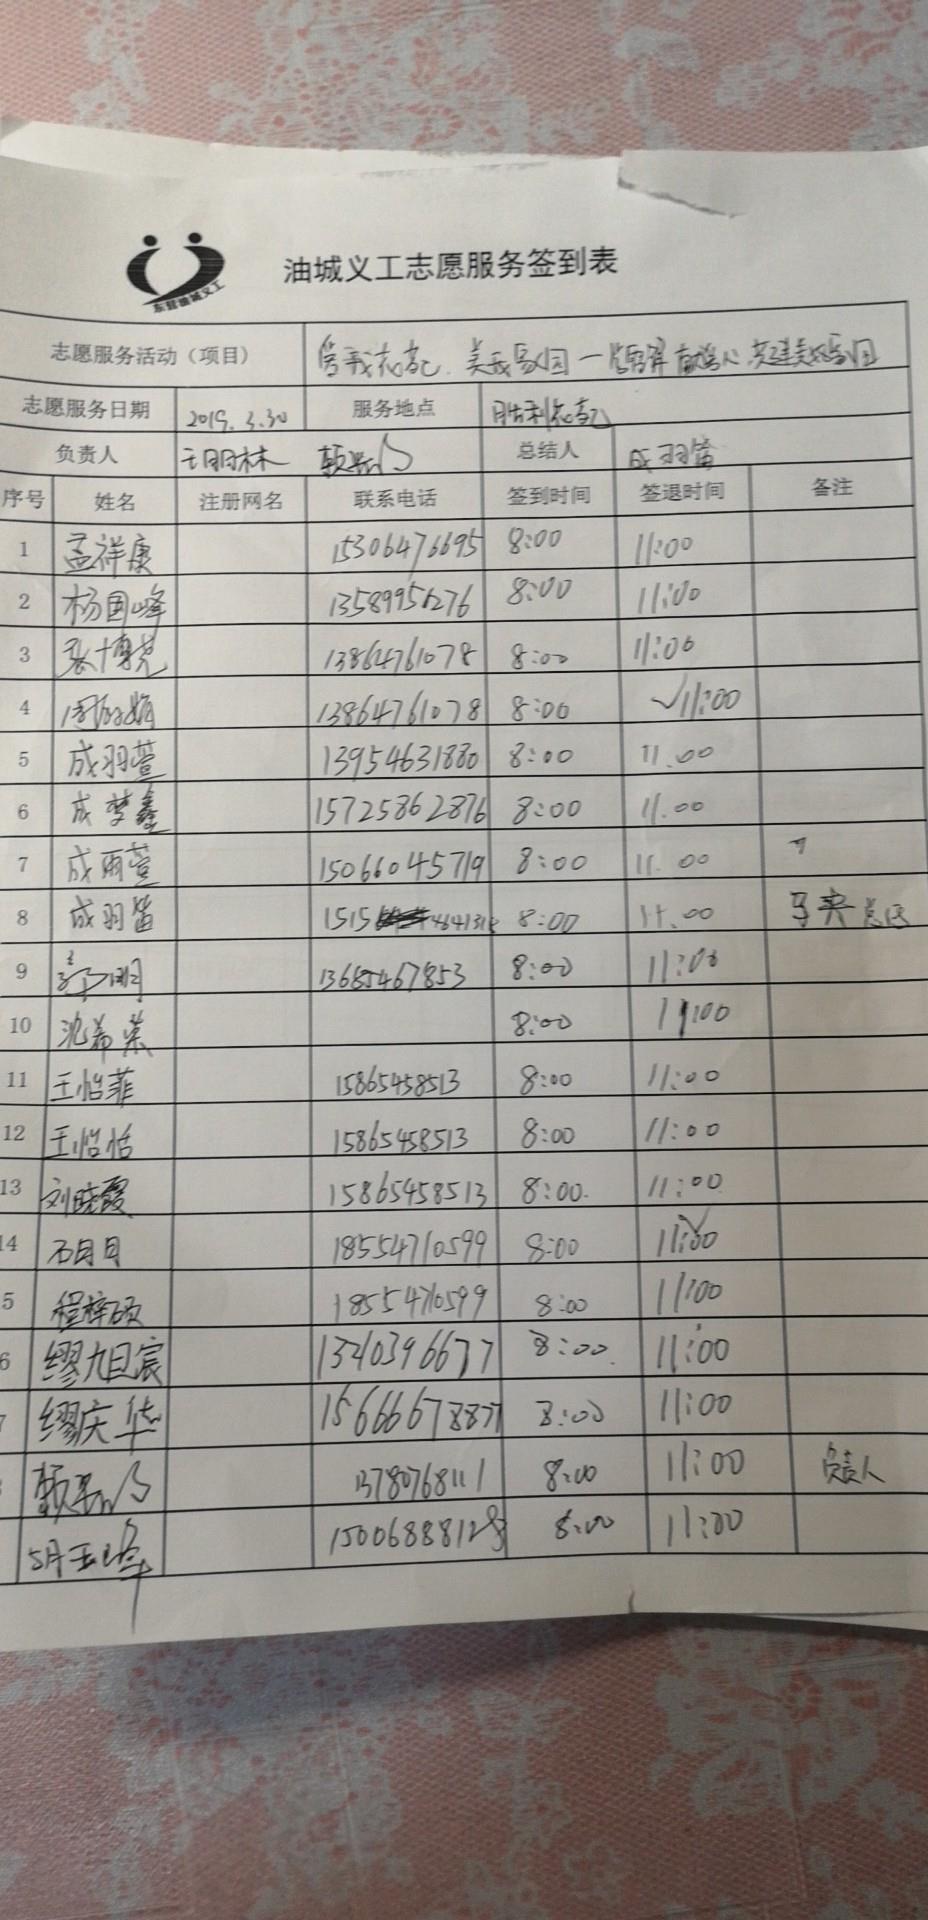 东营油城义工
油城义工志愿服务签到表
志愿服务活动（项目） 美我家园一
志愿服务日期 2019.3.30 服务地点 胜利花苑
负责人 总结人 成羽笛
序号 姓名 注册网名 联系电话 签到时间 签退时间 备注
1 孟祥康 15306476695 8:00 11:00
2 杨国峰 13589951276 8:00 11:00
3 张博尧 13864761078 8:00 11:00
4 13864761078 8:00 11:00
5 成羽萱 13954631880 8:00 11.00
6 成梦鑫 15725862876 8:00 11.00
7 成雨萱 15066045719 8:00 11.00
8 成羽笛 1515 8:00 11.00
9 13685467853 8:00 11:00
10 沈希荣 8:00 11:00
11 王怡菲 15865458513 8:00 11:00
12 王怡恬 15865458513 8:00 11:00
13 刘晓霞 15865458513 8:00. 11:00
14 石目目 18554710599 8:00 11:00
5 程梓硕 18554710599 8:00 11:00
6 缪九巨宸 13210396677 8:00. 11:00
7 缪庆华 15666678877 8:00 11:00
13780768111 8:00 11:00 负责人
15006888128 8:00 11:00